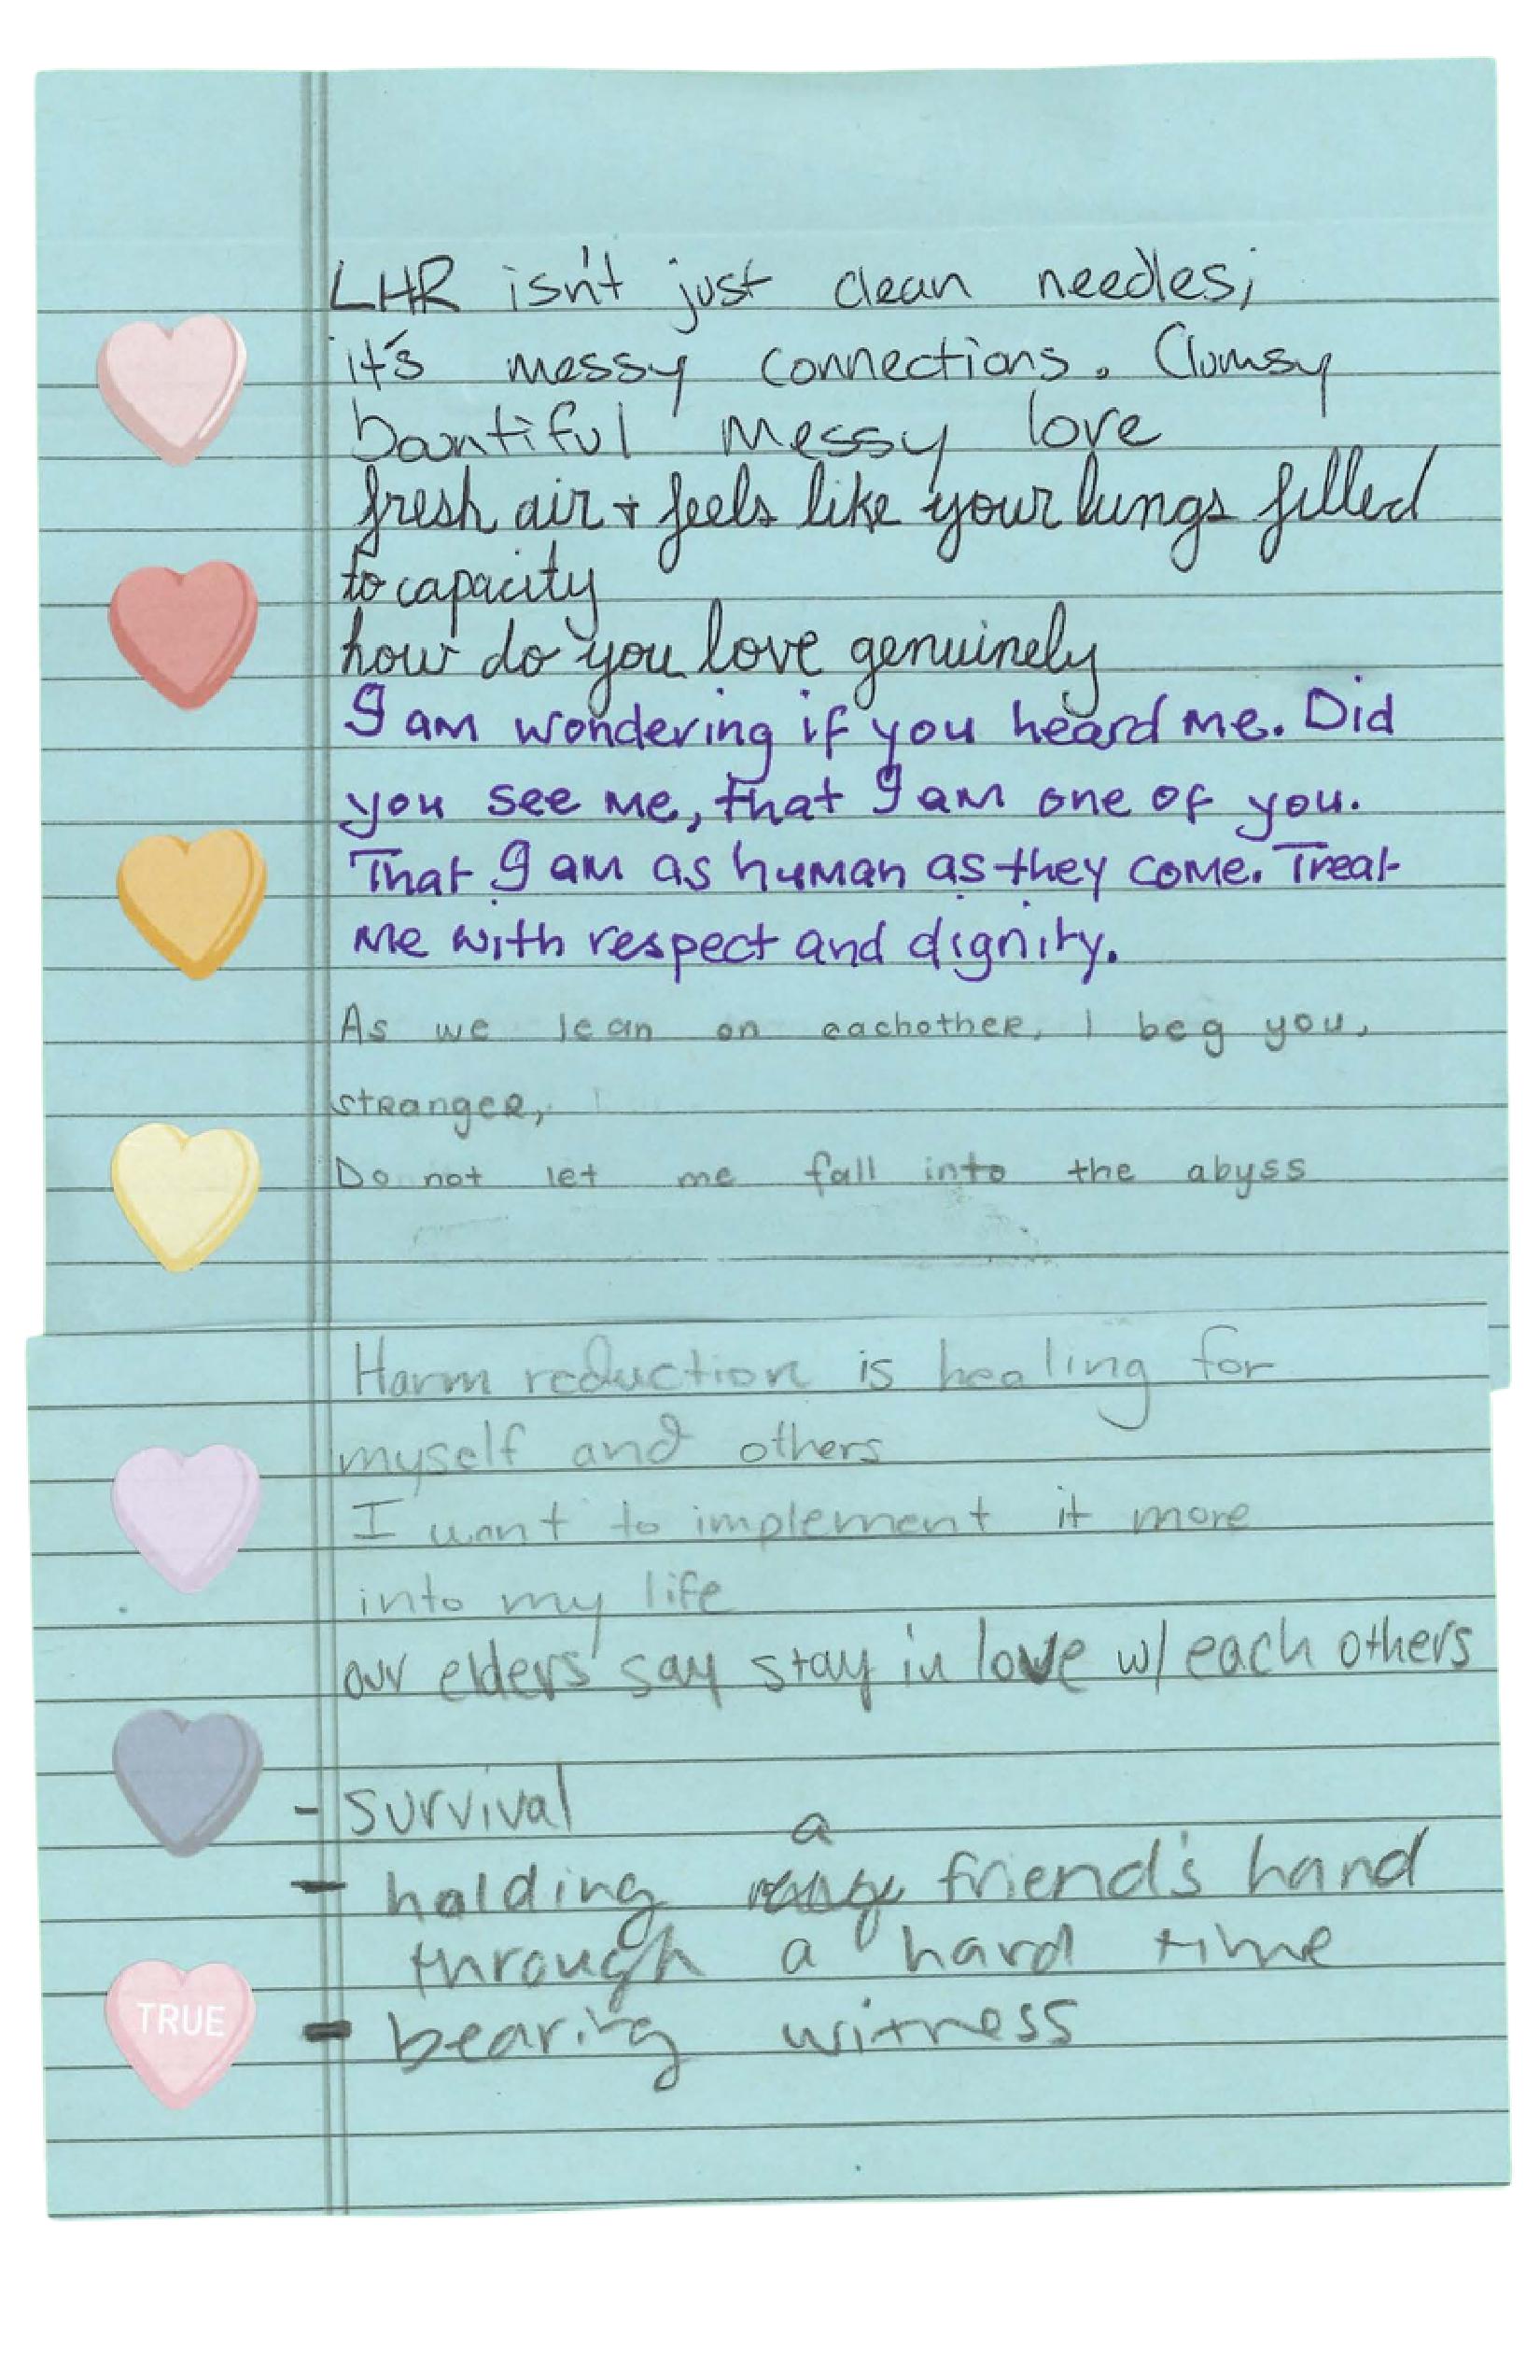 LHR isn't just clean needles;
it's messy connections. Clumsy
bountiful messy love
fresh air + feels like your lungs filled
to capacity
how do you love genuinely
I am wondering if you heard me. Did
you see me, that I am one of you.
That I am as human as they come. Treat
me with respect and dignity.
As we lean on eachother, I beg you,
stranger,
Do not let me fall into the abyss
Harm reduction is healing for
myself and others
I want to implement it more
into my life
our elders say stay in love w/ each others
- survival
- holding a friend's hand
through a hard time
- bearing witness
TRUE